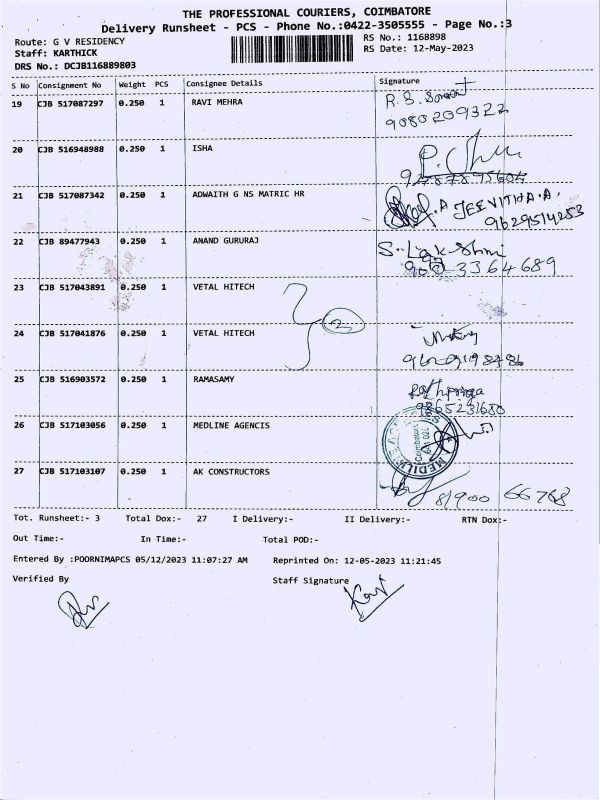 THE PROFESSIONAL COURIERS, COIMBATORE
Delivery Runsheet - PCS - Phone No.:0422-3505555 - Page No.:3
Route: G V RESIDENCY RS No.: 1168898
Staff: KARTHICK RS Date: 12-May-2023
DRS No.: DCJB116889803
S No Consignment No Weight PCS Consignee Details Signature
19 CJB 517087297 0.250 1 RAVI MEHRA R.S.
9080209322
20 CJB 516948988 0.250 1 ISHA
21 CJB 517087342 0.250 1 ADWAITH G NS MATRIC HR A JEEVITHA.A.
9629514253
22 CJB 89477943 0.250 1 ANAND GURURAJ S. Lakshmi
23 CJB 517043891 0.250 1 VETAL HITECH
2
24 CJB 517041876 0.250 1 VETAL HITECH
25 CJB 516903572 0.250 1 RAMASAMY
9865231680
26 CJB 517103056 0.250 1 MEDLINE AGENCIS
Coimbatore
27 CJB 517103107 0.250 1 AK CONSTRUCTORS 81900 66768
Tot. Runsheet:- 3 Total Dox:- 27 I Delivery:- II Delivery:- RTN Dox:-
Out Time:- In Time:- Total POD:-
Entered By :POORNIMAPCS 05/12/2023 11:07:27 AM Reprinted On: 12-05-2023 11:21:45
Verified By Staff Signature